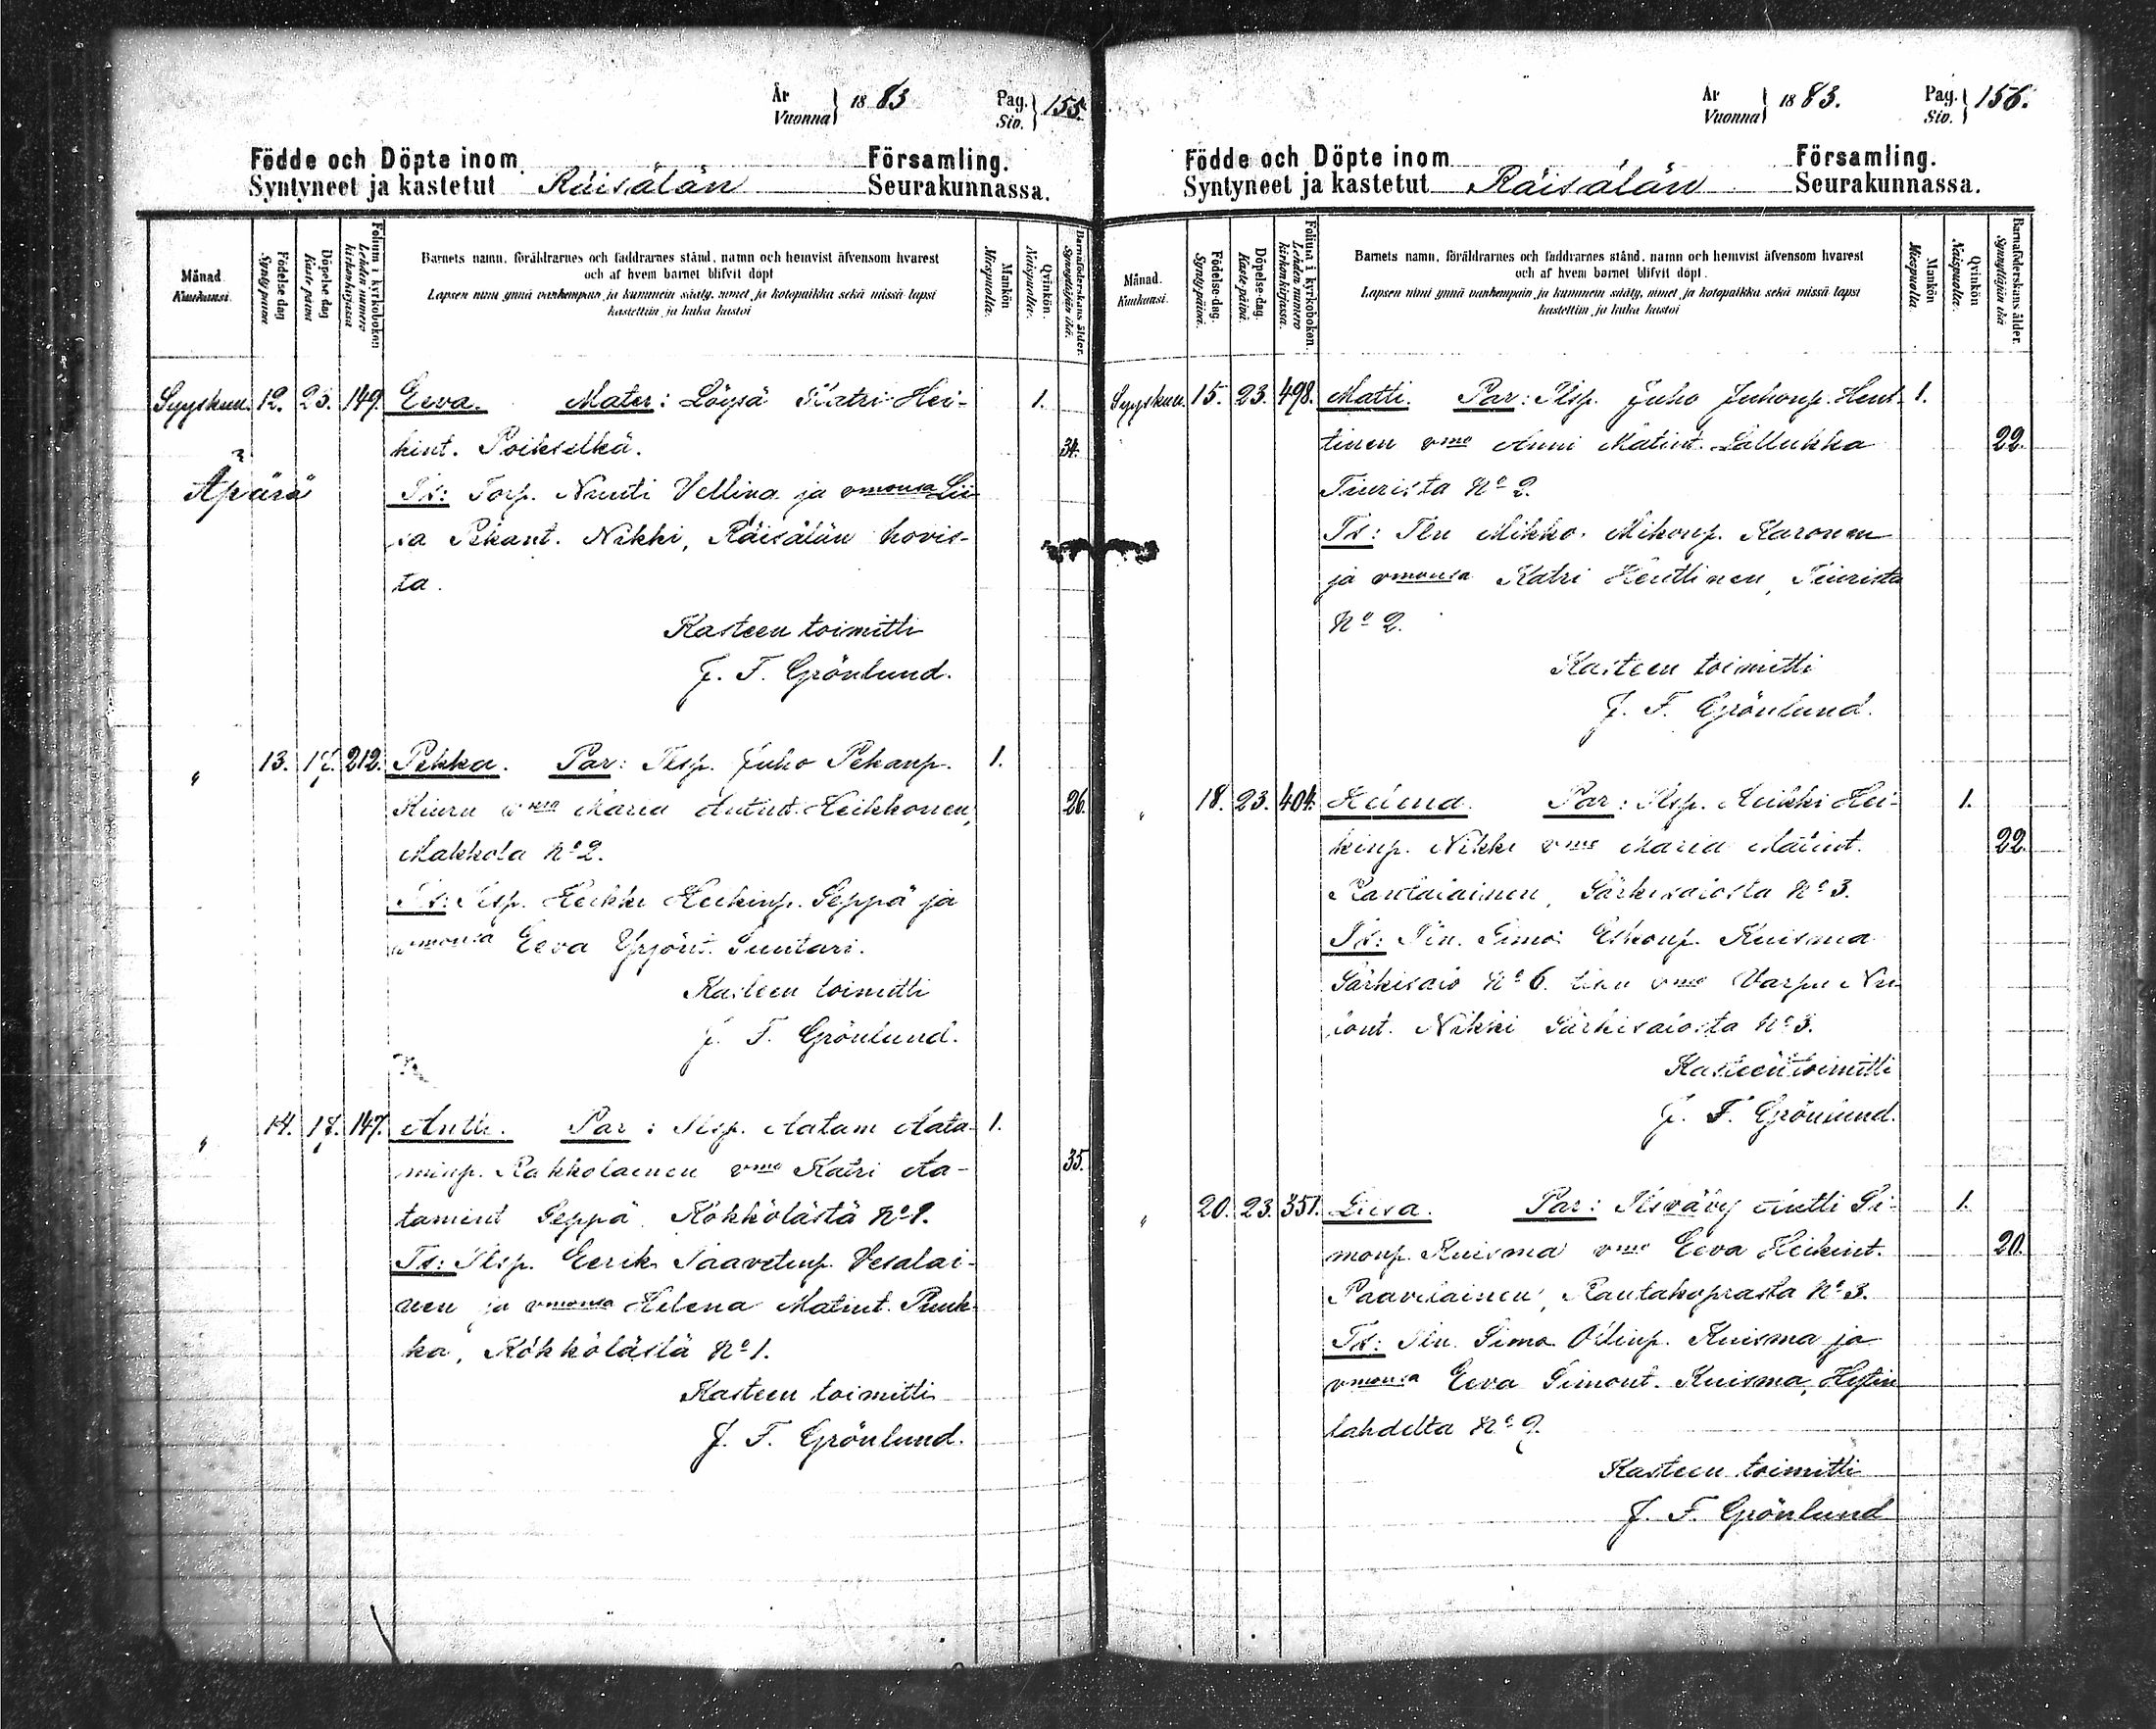 År
Vuonna } 1883
Pag.
Siv. } 155.
Födde och Döpte inom Församling.
Syntyneet ja kastetut Räisälän Seurakunnassa.
Månad.
Kuukausi.
Födelse dag
Synty päivä
Döpelse dag
Kaste päivä
Folium i kyrkoboken
Lehden numero kirkonkirjassa
Barnets namn, föräldrarnes och faddrarnes stånd, namn och hemvist äfvensom hvarest
och af hvem barnet blifvit döpt
Lapsen nimi ynnä vanhempain ja kummein sääty, nimet ja kotopaikka sekä missä lapsi
kastettiin ja kuka kastoi
Mankön
Miespuolia.
Qvinkön.
Naispuolia.
Barnaföderskans ålder.
Synnyttäjän ikä.
Syyskuu. 12. 23. 149. Eeva. Mater: Löysä Katri Hei- 1.
kint. Poikselkä. 34.
Äpärä Ts: Torp. Nuuti Vellina ja vmonsa Lii
sa Pekant. Nikki, Räisälän hovis-
ta.
Kasteen toimitti
J. F. Grönlund.
" 13. 17. 212. Pekka. Par: Tlsp. Juho Pekanp. 1.
Kiuru vmo Maria Antint. Heikkonen, 26.
Makkola No 2.
Ts: Tlsp. Heikki Heikinp. Seppä ja
vmonsa Eeva Yrjönt. Suntari.
Kasteen toimitti
J. F. Grönlund.
" 14. 17. 147. Antti. Par: Tlsp. Aatam Aata- 1.
minp. Kokkolainen vmo Katri Aa- 35.
tamint Seppä. Kökkölästä No 1.
Ts: Tlsp. Eerik Paavetinp. Vesalai-
nen ja vmonsa Helena Matint. Puuk-
ka, Kökkölästä No 1.
Kasteen toimitti
J. F. Grönlund.
År
Vuonna } 1883.
Pag.
Siv. } 156.
Födde och Döpte inom Församling.
Syntyneet ja kastetut Räisälän Seurakunnassa.
Månad.
Kuukausi.
Födelse-dag.
Synty päivä.
Döpelse-dag.
Kaste-päivä.
Folium i kyrkoboken.
Lehden numero kirkonkirjassa.
Barnets namn, föräldrarnes och faddrarnes stånd, namn och hemvist äfvensom hvarest
och af hvem barnet blifvit döpt.
Lapsen nimi ynnä vanhempain ja kummein sääty, nimet ja kotopaikka sekä missä lapsi
kastettiin ja kuka kastoi
Mankön
Miespuolia.
Qvinkön
Naispuolia.
Barnaföderskans ålder.
Synnyttäjän ikä
Syyskuu. 15. 23. 498. Matti. Par: Tlsp. Juho Juhonp. Hent 1.
tinen vmo Anni Matint. Lallukka 22.
Tiurista No 2.
Ts: Tln Mikko Mikonp. Karonen
ja vmonsa Katri Henttinen, Tiurista
No 2.
Kasteen toimitti
J. F. Grönlund.
" 18. 23. 404. Helena. Par: Tlsp. Heikki Hei- 1.
kinp. Nikki vmo Maria Matint. 22.
Rantalainen, Särkisalosta No 3.
Ts: Tln. Simo Eskonp. Kuisma
Särkisalo No 6. vmo Varpu Nu
Nikki Särkisalosta No 3.
Kasteen toimitti
J. F. Grönlund.
" 20. 23. 351. Liisa. Par: Tlsvävy Antti Si- 1.
monp. Kuisma vmo Eeva Heikint. 20.
Paavilainen, Rantakoprasta No 3.
Ts: Tln. Simo Ollinp. Kuisma ja
vmonsa Eeva Simont. Kuisma, Hytin
lahdelta No 9.
Kasteen toimitti
J. F. Grönlund